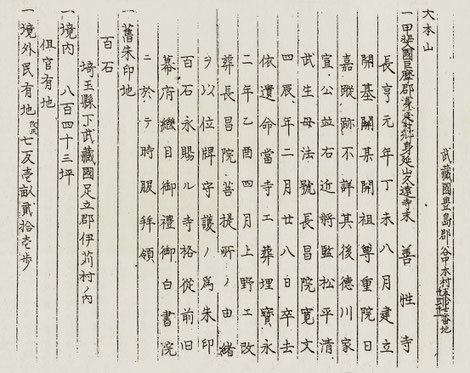 大本山
武藏國豊島郡谷中本村
番地
一甲斐國巨摩郡 身延山久遠寺末 善性寺
長享元年丁未八月建立
開基闢某開祖尊重院日
嘉蹤跡不詳其後德川家
宣公並右近將監松平清
武生母法號長昌院寛文
四辰年二月廿八日卒去
依遺命當寺工葬埋寶永
二年乙酉四月上野工改
葬長昌院菩提所ノ由緒
ヲ以位牌守護ノ爲朱印
百石永賜ル寺格從前旧
幕府継目御禮御白書院
ニ於テ時服拜領
一舊朱印地
百石
埼玉縣下武藏國足立郡伊苅村ノ内
一境内 八百四十三坪
但官有地
一境外民有地 七反壱畝貳拾壱歩